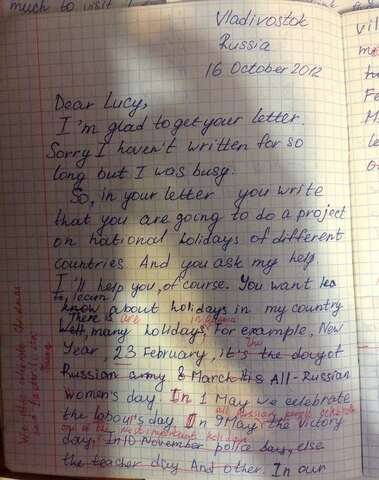 much to visit
Vladivostok
Russia
16 October 2012
Dear Lucy,
I'm glad to get your letter.
Sorry I haven't written for so
long but I was busy.
So, in your letter you write
that you are going to do a project
on national holidays of different
countries. And you ask my help.
I'll help you, of course. You want
to learn
know about holidays in my country
There is are
Well, many holidays, For example, New
the
Year, 23 February, it's the day of
Russian army 8 March it is All-Russian
women's day. In 1 May we celebrate
all Russian people celebrate
the labour's day. In 9 May the victory
one of the most important holidays
day, In 10 November police day, else
the teacher day And other. In our